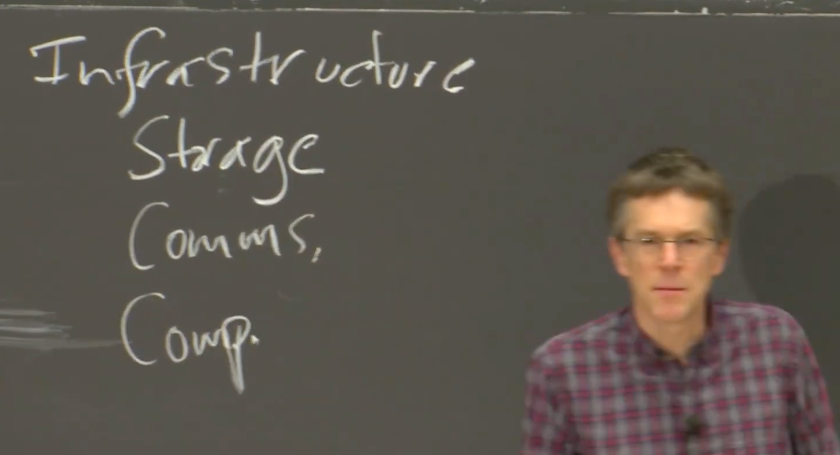 Infrastructure
Storage
Comms.
Comp.